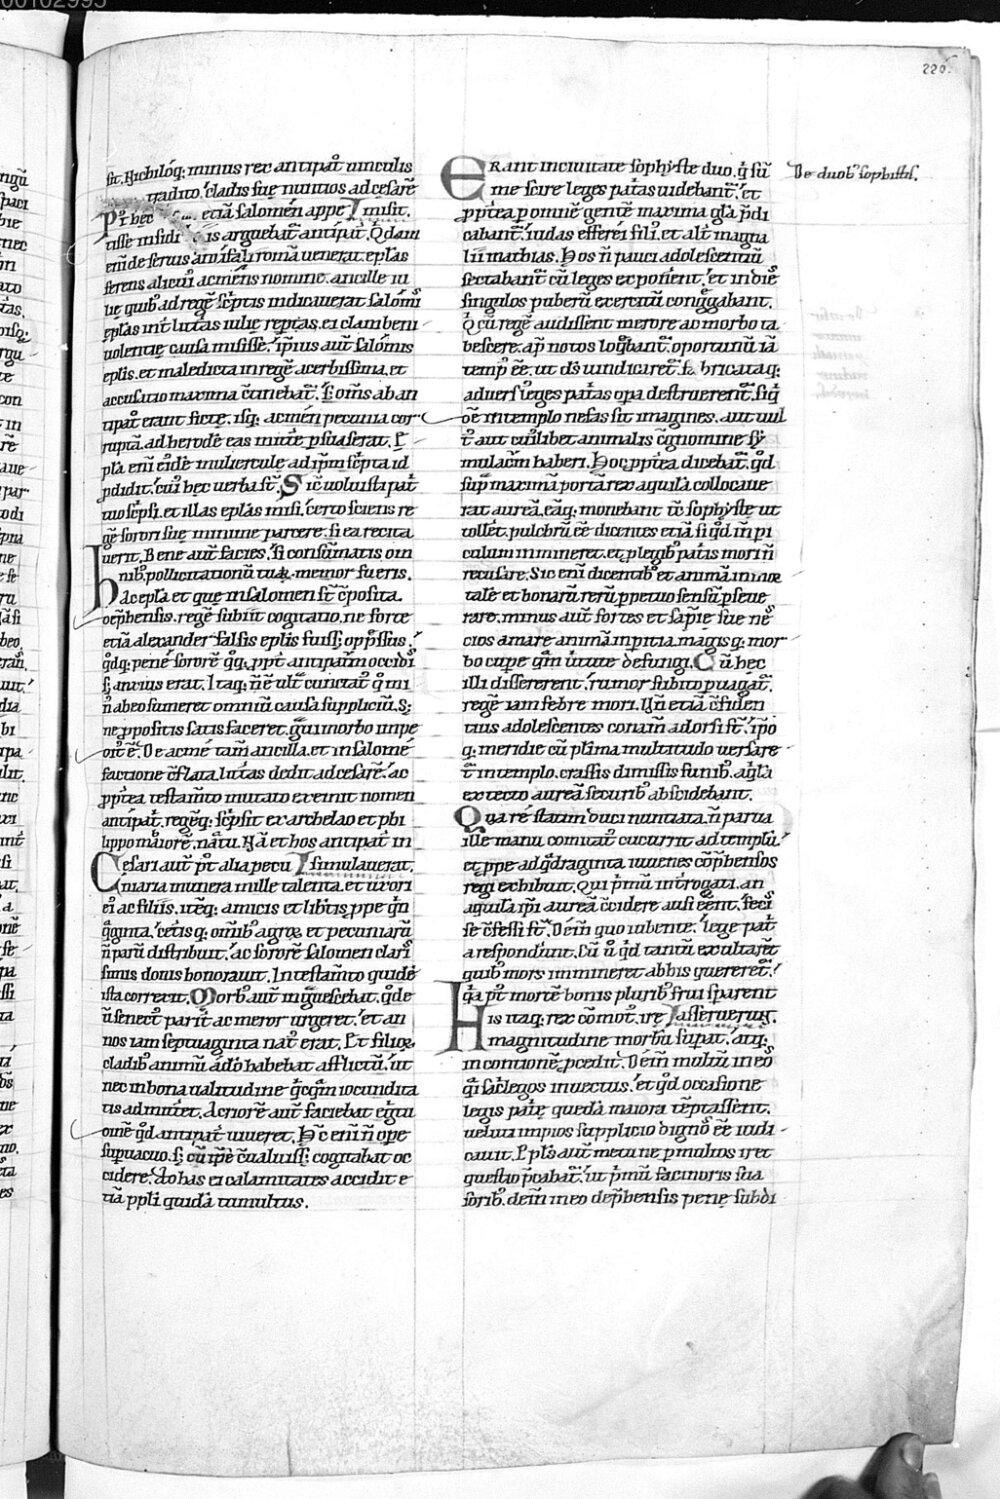 226
sit. Nichiloq; minus rex antipat̄ uinculis
tradito, cladis suę nuntios ad cesarē
misit.
P̄t hec etiā salomen appe
tisse insidiis arguebat̄ antipat̄. Qdam
enī de seruis antifali roma uenerat eplas
ferens alicui acmēns nomine. ancille iu
lię quib; ad regē sc̄ptis indicauerat salomī
eplas int̄ litt̄as iulię reptas. ei clam beni
uolentię causa misisse. ipsius aut̄ salomis
eplis. et maledicta in regē acerbissima. et
accusatio maxima c̄tinebat̄. S; om̄s ab an
tipat̄ erant fictę. isq; acmēn pecunia cor
ruptā. ad herodē eas mitt̄e p̄suaserat. E
pla enī eidē mulierculę ad ip̄m sc̄pta id
p̄didit. cui hec uerba st̄. Sic̄ uoluisti pat̄
tuo sc̄psi. et illas eplas misi. certo sciens re
gē sorori suę minime parcere. si ea recita
uerit. Bene aut̄ facies. si consūmatis om
nib; pollicitationū tuaꝝ memor fueris.
Hac epla et que in salomen st̄ c̄posita
dep̄hensis. regē subiit cogitatio. ne forte
etiā alexander falsis eplis fuiss; opp̄ssus.
qdq; penē sororē qq; ppt̄ antipat̄m occidi
s; anxius erat. Itaq; nē ult̄ cunctat̄ q̄ mi
n̄ ab eo sumeret omniū causa suppliciū. S;
ne p̄positis satis faceret. g̃ui morbo impe
dit̄ ē. De acmē tam̄ ancilla. et in salomē
factione c̄flata. litt̄as dedit ad cesarē. ac
pp̄tea testam̄to mutato exemit nomen
antipat̄. regēq; sc̄psit ex archelao et phi
lippo maiorē natu. Nā et hos antipat̄ in
simulauerat.
Cesari aut̄ p̄t alia pecu
niaria munera mille talenta. et uxori
ei ac filiis. itēq; amicis et lib̄tis p̄pe q̄n
q̄ginta. cet̄is q; om̄ib; agros et pecuniarū
n̄ parū distribuit. ac sororē salomen claris
simis donis honorauit. In testam̄to quidē
ista correxit. Morb; aut̄ ingrescebat. q̄de
ū senect̄ parit̄ ac meror urgeret. et an
nos iam septuaginta nat̄ erat. Et filioꝝ
cladib; animū adō habebat afflictū. ut
nec in bona ualitudine q̄cq̄m iocundita
tis admitt̄et. Acriorē aut̄ faciebat ęgtu
dinē qd antipat̄ uiueret. H̄c enī n̄ ope
supuacuo. s; cū ip̄e c̄ualuiss; cogitabat oc
cidere. Ad has ei calamitates accidit e
tiā ppli quidā tumultus.
ERant in ciuitate sophyste duo. q̄ sū
me scire leges pat̄as uidebant̄. et
pp̄tea p omnē gentē maxima gl̄a p̄di
cabant̄. iudas efferei fili. et alt̄ magna
lii mathias. Hos n̄ pauci adolescentiū
sectabant̄ cū leges exponent. et in diē
singulos puberū exercitū cong̃gabant.
Q̄ cū regē audissent merore ac morbo ta
bescere. ap̄ notos loq̄bant̄. oportunū iā
temp; ēe. ut dš uindicaret̄. fabricataq;
aduers̄ leges pat̄as opa destruerent̄. siq̄
dē in templo nefas sit imagines. aut uul
t̄ aut cui libet animalis c̄gnomine sy
mulac̄m haberi. Hoc pp̄tea dicebat̄. qd
sup̄ maximā portā rex aquilā collocaue
rat aureā. eāq; monebant tc̄ sophystę ut
tollet̄. pulchrū ēe dicentes etiā si qd in pi
culum immineret. et p legib; pat̄is mori n̄
recusare. Sic enī dicentib; et animā inmor
talē et bonarū rerū ppetuo sensū pseue
rare. minus aut̄ fortes et sapīe sue ne
cios amare animā in pitia. magisq; mor
bo cupe q̄m uirtute defungi. Cū hec
illi dissererent. rumor subito puagat̄.
regē iam febre mori. Un̄ etiā c̄fiden
tius adolescentes conam̄ adorsi st̄. ip̄o
q; meridie cū plima multitudo uersare
t̄ in templo. crassis dimissis funib; aq̄la
ex tecto aureā securib; abscidebant.
Qua rē statim duci nuntiata. n̄ parua
ille manu comitat̄ cucurrit ad templū.
et p̄pe ad q̄draginta iuuenes cōp̄hensos
regi exhibuit. Qui p̄mū int̄rogati. an
aquilā ip̄i aureā c̄cidere ausi eēnt. feci
se c̄fessi st̄. Deīn quo iubente. lege pat̄
a respondiunt. Cū ū qd tantū exultaret̄
quib; mors immineret ab his quereret̄.
q̄a p̄t mortē bonis plurib; frui sparent
asseruerunt.
His itaq; rex cōmot̄. irę
magnitudine morbū supat. atq;
in contionē p̄cedit. Deīn multū in eos
q̄si sac̄legos inuectus. et qd occasione
legis pat̄ię quedā maiora tēptassent.
uelut impios supplicio dignos ēe iudi
cauit. Ppl's aut̄ metu ne p multos iret
questio p̄cabat̄. ut p̄mū facinoris sua
sorib; dein in eo dep̄hensis penę subdi
De duob; sophistis.